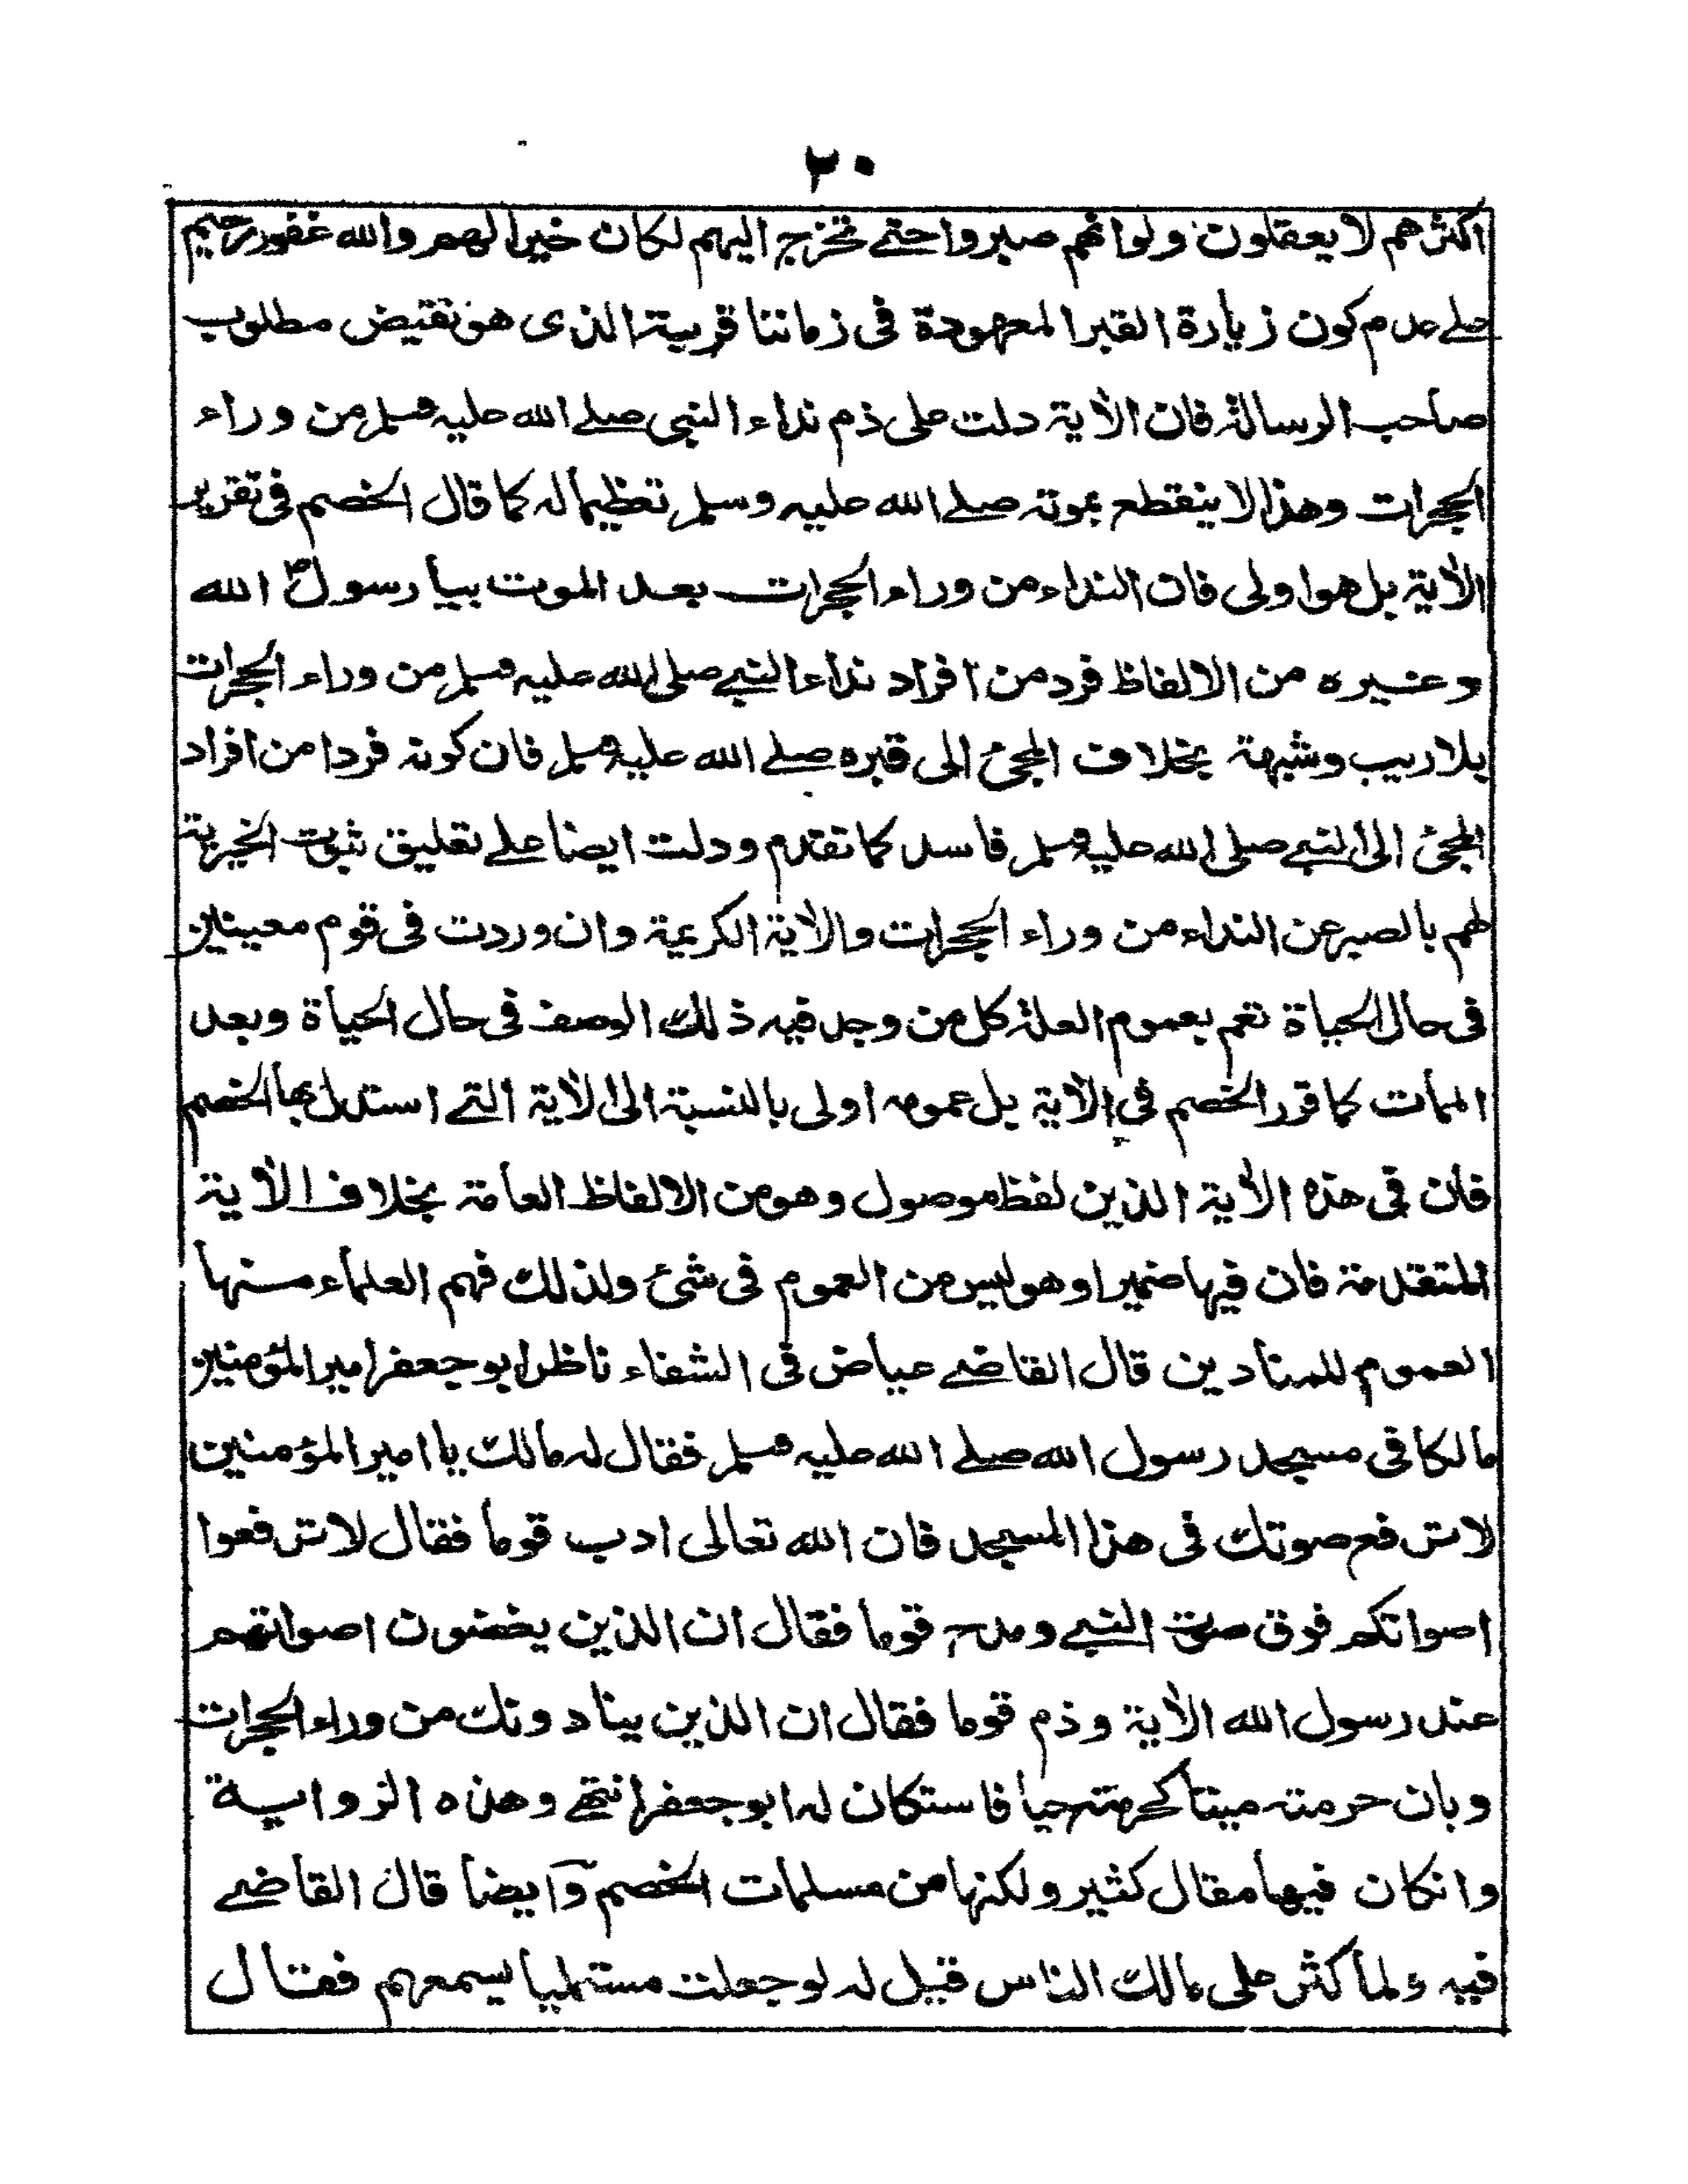 ٢٠
اكثرهم لا يعقلون ولو انهم صبروا حتے تخرج اليهم لكان خيرا لهم والله غفور رحيم
علے عدم كون زيارة القبر المعهودة فى زماننا قربة الذى هو نقيض مطلوب
صاحب الرسالة فان الأية دلت على ذم نداء النبى صلے الله عليه وسلم من وراء
الحجرات وهذا لا ينقطع بموته صلے الله عليه وسلم تعظيما له كما قال الخصم فى تقرير
الأية بل هو اولى فان النداء من وراء الحجرات بعد الموت بيا رسول الله
وغيره من الالفاظ فرد من افراد نداء النبے صلى الله عليه وسلم من وراء الحجرات
بلا ريب وشبهة بخلاف المجئ الى قبره صلے الله عليه وسلم فان كونه فردا من افراد
المجئ الى النبے صلى الله عليه وسلم فاسد كما تقدم ودلت ايضا علے تعليق ثبوت الخيرية
لهم بالصبر عن النداء من وراء الحجرات والأية الكريمة وان وردت فى قوم معينين
فى حال الحياة تعم بعموم العلة كل من وجد فيه ذلك الوصف فى حال الحياة وبعد
الممات كما قرر الخصم فى الأية بل عمومه اولى بالنسبة الى الأية التے استدل بها الخصم
فان فى هذه الأية الذين لفظ موصول وهو من الالفاظ العامة بخلاف الأية
المتقدمة فان فيها ضميرا وهو ليس من العموم فى شئ ولذلك فهم العلماء منها
العموم للمنادين قال القاضے عياض فى الشفاء ناظر ابو جعفر امير المؤمنين
مالكا فى مسجد رسول الله صلے الله عليه وسلم فقال له مالك يا امير المؤمنين
لا ترفع صوتك فى هذا المسجد فان الله تعالى ادب قوما فقال لا ترفعوا
اصواتكم فوق صوت النبے ومدح قوما فقال ان الذين يغضون اصواتهم
عند رسول الله الأية وذم قوما فقال ان الذين ينادونك من وراء الحجرات
وبان حرمته ميتا كحرمته حيا فاستكان له ابو جعفر انتهے وهذه الرواية
وانكان فيها مقال كثير ولكنها من مسلمات الخصم وايضا قال القاضے
فيه ولما كثر على مالك الناس قيل له لو جعلت مستمليا يسمعهم فقال